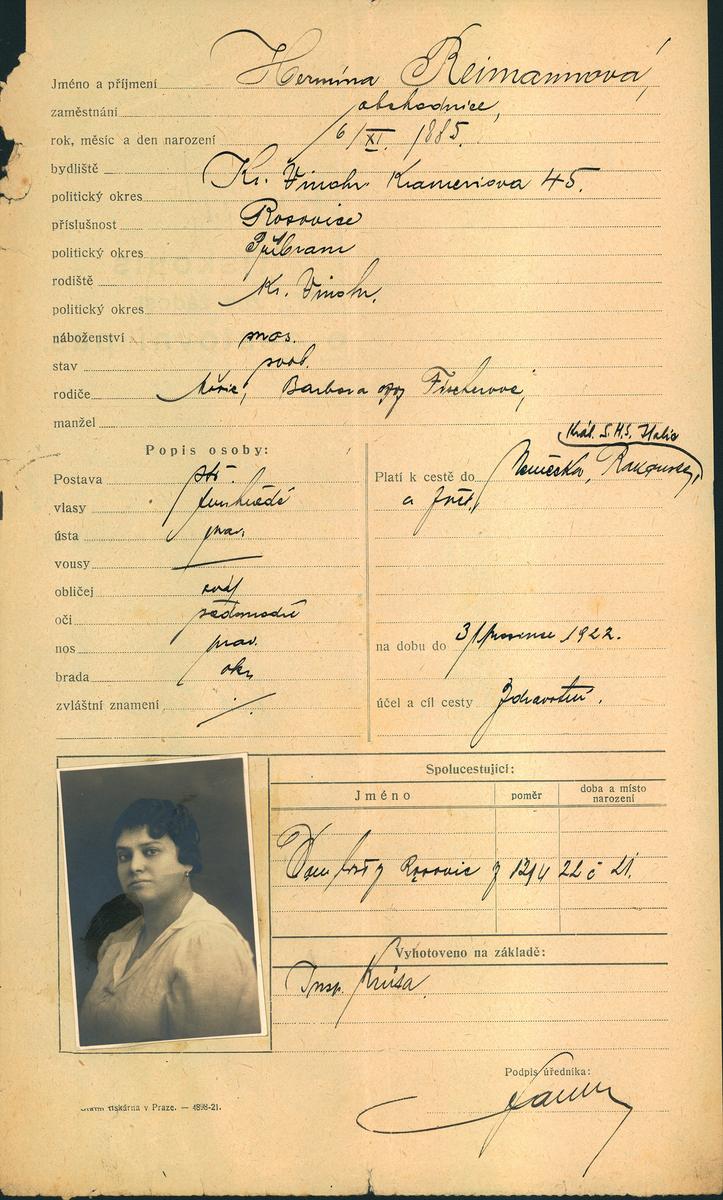 Jméno a příjmení Hermína Reimannová,
zaměstnání obchodnice,
rok, měsíc a den narození 6/XI. 1885.
bydliště Kr. Vinohr. Krameriova 45.
politický okres
příslušnost Rosovice
politický okres Příbram
rodiště Kr. Vinohr.
politický okres
náboženství mos.
stav svob.
rodiče Barbora Fischerová,
manžel
Popis osoby:
Postava stř.
vlasy tmhnědé
ústa prav.
vousy —
obličej ovál
oči šedomodré
nos prav.
brada okr.
zvláštní znamení ./.
Král. S.H.S. Italie
Platí k cestě do Německa, Rakouska,
a zpět.
na dobu do 31/prosince 1922.
účel a cíl cesty Zdravotní.
Spolucestující:
Jméno poměr doba a místo narození
Dom. list z Rosovic z 12/4 22 č 21.
Vyhotoveno na základě:
Insp.
Podpis úředníka:
tiskárna v Praze. — 4898-21.